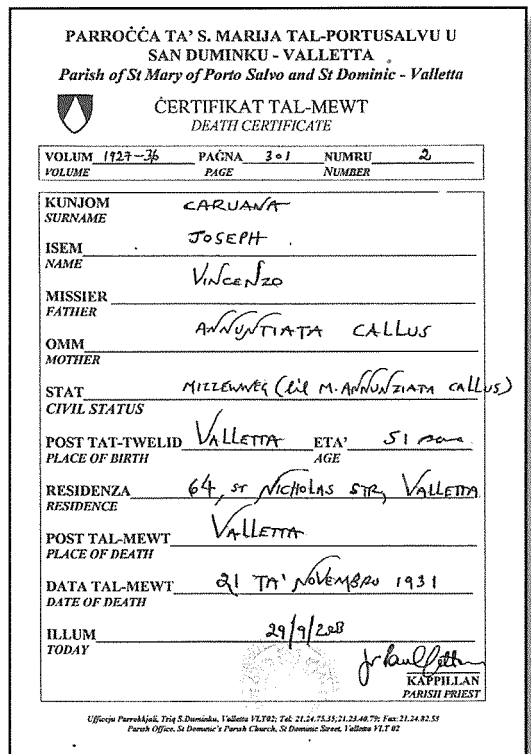 PARROĊĊA TA' S. MARIJA TAL-PORTUSALVU U
SAN DUMINKU - VALLETTA
Parish of St Mary of Porto Salvo and St Dominic - Valletta
ĊERTIFIKAT TAL-MEWT
DEATH CERTIFICATE
VOLUM 1927-36 PAĠNA 301 NUMRU 2
VOLUME PAGE NUMBER
KUNJOM CARUANA
SURNAME
ISEM JOSEPH
NAME
MISSIER VINCENZO
FATHER
OMM ANNUNTIATA CALLUS
MOTHER
STAT MIZZEWWEĠ (lil M. ANNUNZIATA CALLUS)
CIVIL STATUS
POST TAT-TWELID VALLETTA ETA' 51 sena
PLACE OF BIRTH AGE
RESIDENZA 64, ST NICHOLAS STR, VALLETTA
RESIDENCE
POST TAL-MEWT VALLETTA
PLACE OF DEATH
DATA TAL-MEWT 21 TA' NOVEMBRU 1931
DATE OF DEATH
ILLUM 29/9/2003
TODAY
KAPPILLAN
PARISH PRIEST
Uffiċju Parrokkjali, Triq S.Duminku, Valletta VLT02; Tel: 21.24.75.35;21.23.40.79; Fax: 21.24.82.53
Parish Office, St Dominic's Parish Church, St Dominic Street, Valletta VLT 02